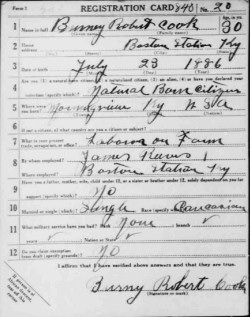 Form 1 REGISTRATION CARD 840 No. 20
1 Name in full Burney Robert Cook Age, in yrs. 30
(Given name) (Family name)
2 Home address Boston Station Ky
3 Date of birth July 23 1886
(Month) (Day) (Year)
4 Are you (1) a natural-born citizen, (2) a naturalized citizen, (3) an alien, (4) or have you declared your intention (specify which)? Natural Born Citizen
5 Where were you born? Ky U S A
6 If not a citizen, of what country are you a citizen or subject?
7 What is your present trade, occupation, or office? Laborer on Farm
8 By whom employed? James
Where employed? Boston Station Ky
9 Have you a father, mother, wife, child under 12, or a sister or brother under 12, solely dependent on you for support (specify which)? No
10 Married or single (which)? Single Race (specify which)? Caucasian
11 What military service have you had? Rank None ; branch
years ; Nation or State
12 Do you claim exemption from draft (specify grounds)? No
I affirm that I have verified above answers and that they are true.
Robert Cook
(Signature or mark)